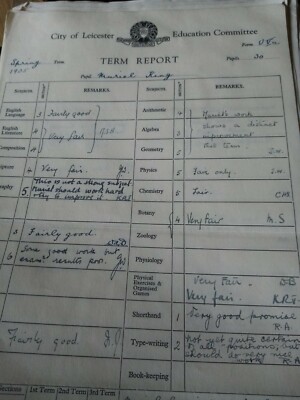 City of Leicester Education Committee
Form UVa
Spring Term TERM REPORT Pupils 30
Pupil Muriel King
SUBJECTS. REMARKS. SUBJECTS. REMARKS.
English Language 3 Fairly good
English Literature 4 Very fair
Composition 4
Arithmetic 4
Algebra 3
shows a distinct
improvement
this term.
Geometry 2
4 Very fair.
Physics 5 Fair only.
5 This is not a strong subject
Muriel should work hard
try to improve it
Chemistry 5 Fair.
Botany 4 Very Fair M.S
3 Fairly good.
Zoology
6 Some good work but
exam results poor.
Physiology
Physical
Exercises &
Organised
Games
Very Fair.
Very fair. K.R.G
Shorthand 1 Very good promise
K.A
Fairly good.
Type-writing 2 Not yet quite certain
of all positions, but
should do very well
K.A
Book-keeping
1st Term 2nd Term 3rd Term